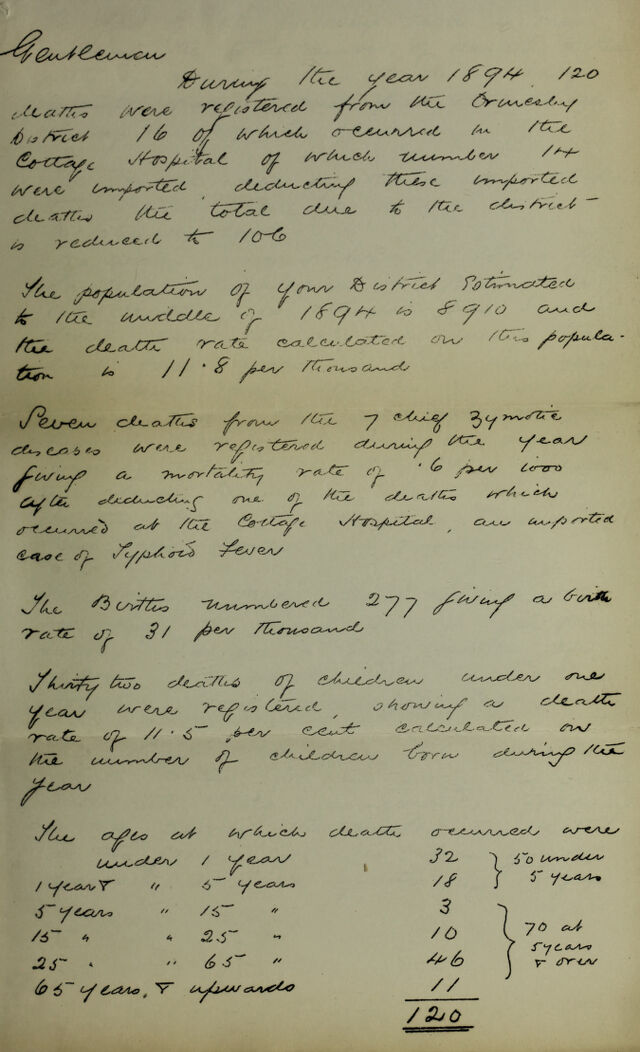 Gentleman
During the year 1894 120
deaths were registered from the Ormesby
District 16 of which occurred in the
Cottage Hospital of which number 14
were imported, deducting these imported
deaths the total due to the district
is reduced to 106
The population of your District Estimated
to the middle of 1894 is 8910 and
the death rate calculated on this popula-
tion is 11.8 per thousand
Seven deaths from the 7 chief Zymotic
diseases were registered during the year
giving a mortality rate of .6 per 1000
after deducting one of the deaths which
occurred at the Cottage Hospital, an imported
case of Typhoid Fever
The Births numbered 277 giving a birth
rate of 31 per thousand
Thirty two deaths of children under one
year were registered, showing a death
rate of 11.5 per cent calculated on
the number of children born during the
year
The ages at which death occurred were
under 1 year 32 } 50 under
1 year & " 5 years 18 } 5 years
5 years " 15 " 3
15 " " 25 " 10 } 70 at
25 " " 65 " 46 5 years & over
65 years. & upwards 11
120